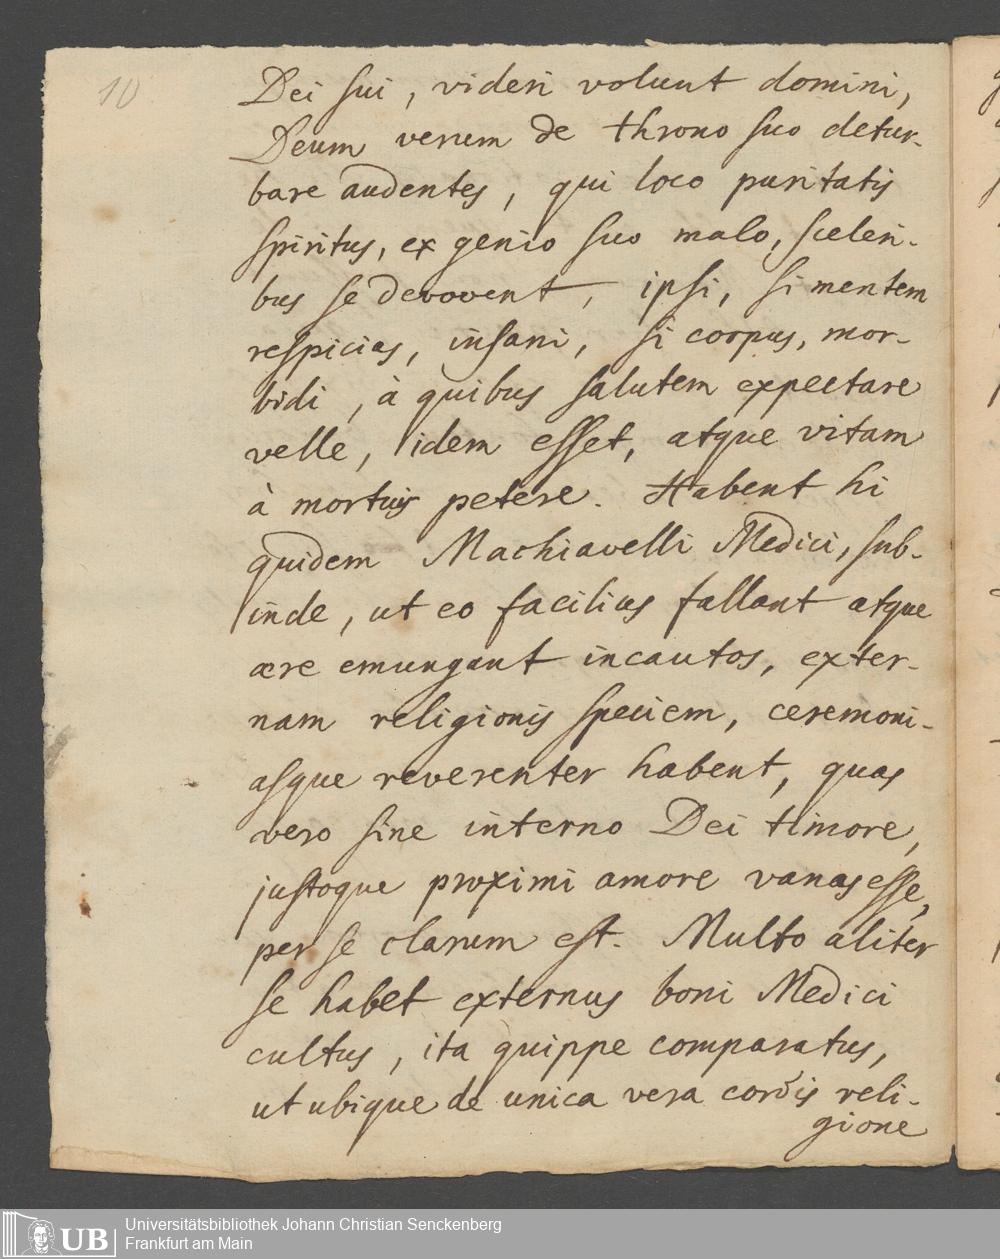 10
Dei sui, videri volunt domini,
Deum verum de throno suo detur-
bare audentes, qui loco puritatis
spiritus, ex genio suo malo, sceleri-
bus se devovent, ipsi, si mentem
respicias, insani, si corpus, mor-
bidi, à quibus salutem expectare
velle, idem esset, atque vitam
à mortuis petere. Habent hi
quidem Machiavelli Medici, sub-
inde, ut eo facilius fallant atque
ære emungant incautos, exter-
nam religionis speciem, ceremoni-
asque reverenter habent, quas
vero sine interno Dei timore,
justoque proximi amore vanas esse,
per se clarum est. Multo aliter
se habet externus boni Medici
cultus, ita quippe comparatus,
ut ubique de unica vera cordis reli-
gione
UB
Universitätsbibliothek Johann Christian Senckenberg
Frankfurt am Main